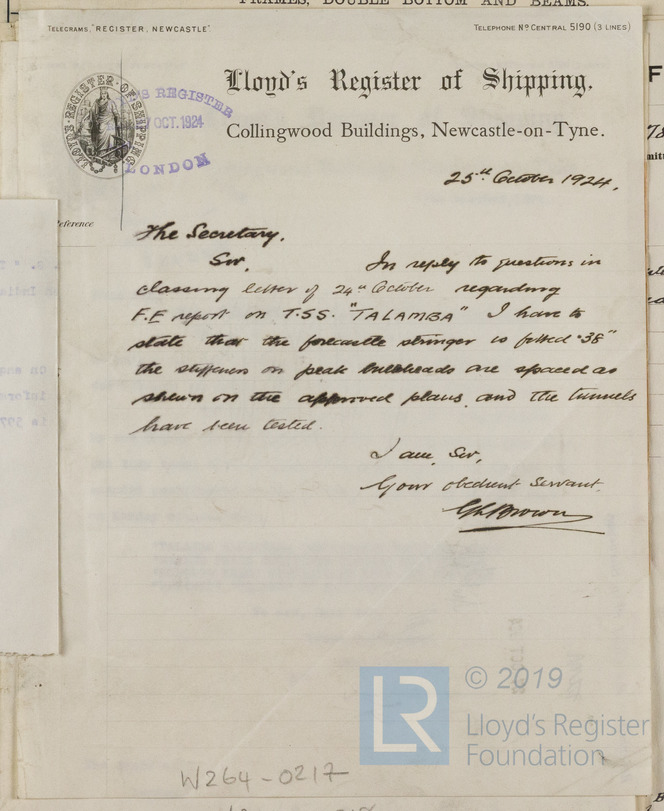 FRAMES, DOUBLE BOTTOM AND BEAMS.
TELEGRAMS, "REGISTER, NEWCASTLE"
TELEPHONE No CENTRAL 5190 (3 LINES)
Lloyd's Register of Shipping,
Collingwood Buildings, Newcastle-on-Tyne.
LLOYD'S REGISTER OF SHIPPING
REGISTER
OCT. 1924
LONDON
25th October 1924,
eference
The Secretary.
Sir,
In reply to questions in
classing letter of 24th October regarding
F.E report on T.S.S. "TALAMBA" I have to
state that the forecastle stringer is fitted .38"
the stiffeners on peak bulkheads are spaced as
shewn on the approved plans, and the tunnels
have been tested.
I am, Sir,
Your obedient Servant.
Brown
© 2019
LR
Lloyd's Register
Foundation
W264-0217